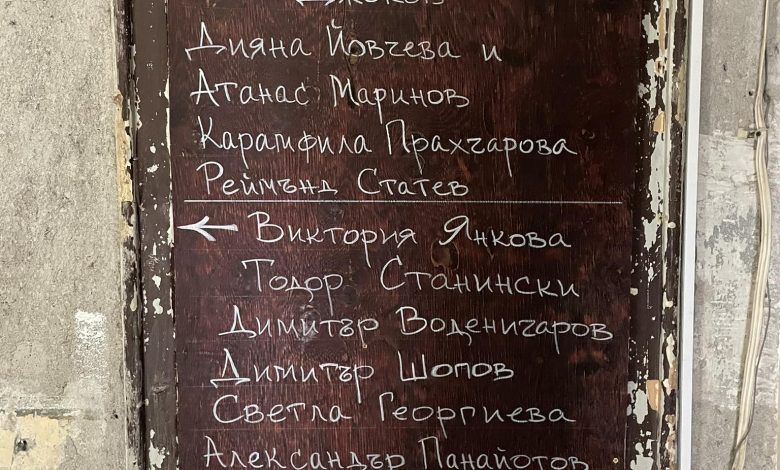 Дияна Йовчева и
Атанас Маринов
Карамфила Прахчарова
Реймънд Статев
← Виктория Янкова
Тодор Станински
Димитър Воденичаров
Димитър Шопов
Светла Георгиева
Александър Панайотов